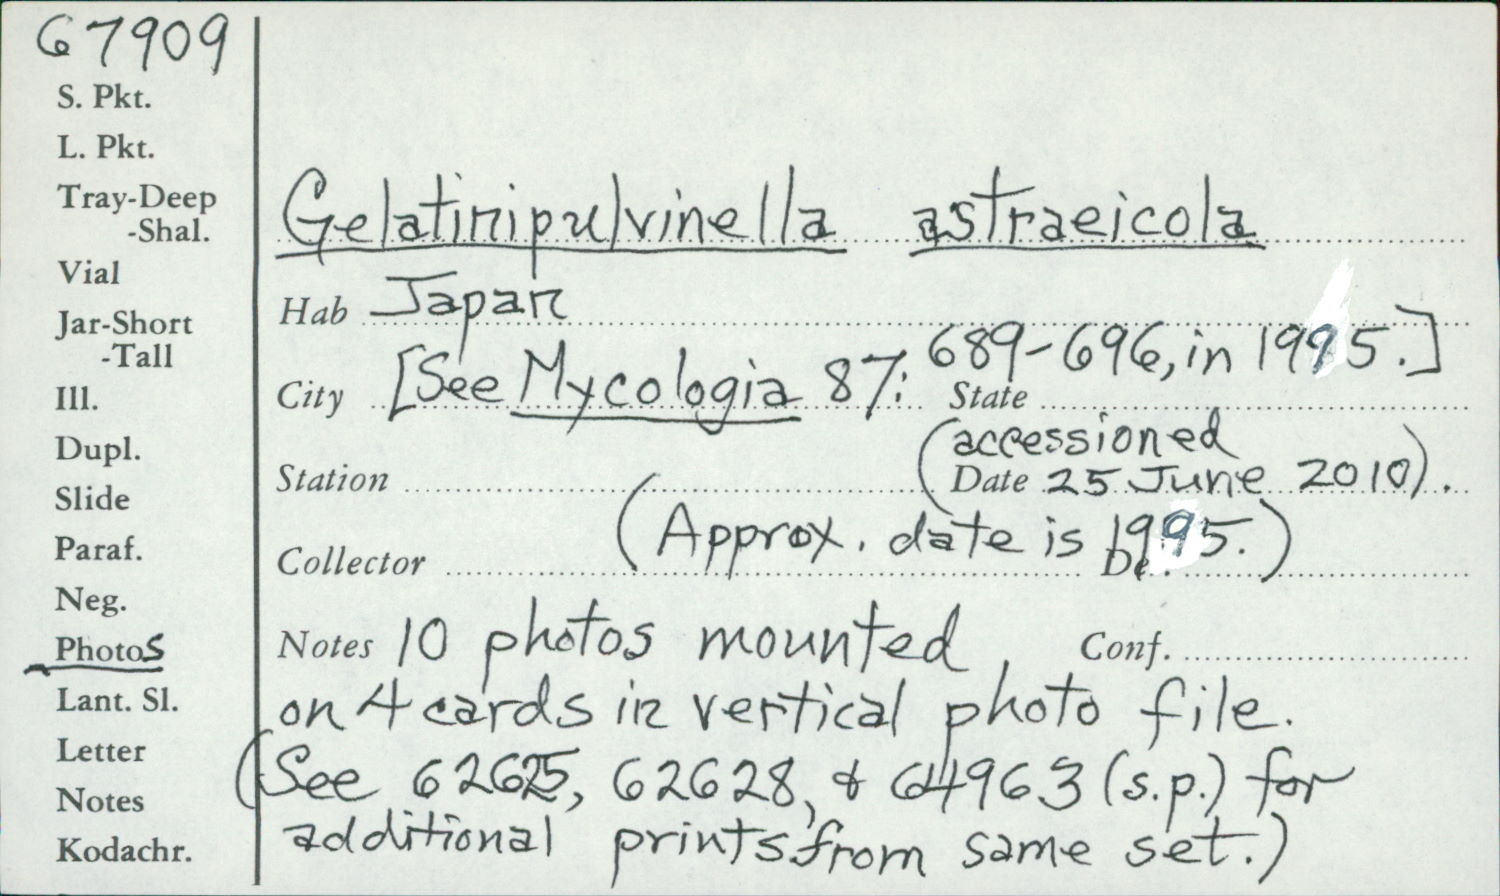 67909
S. Pkt.
L. Pkt.
Tray-Deep
-Shal.
Vial
Jar-Short
-Tall
Ill.
Dupl.
Slide
Paraf.
Neg.
Photos
Lant. Sl.
Letter
Notes
Kodachr.
Gelatinipulvinella astraeicola
Hab Japan
City [See Mycologia 87: 689-696, in 1995.]
State
(accessioned
Station Date 25 June 2010).
(Approx. date is 1995.)
Collector
Notes 10 photos mounted, Conf.
on 4 cards in vertical photo file.
(See 62625, 62628, & 64963 (s.p.) for
additional prints from same set.)